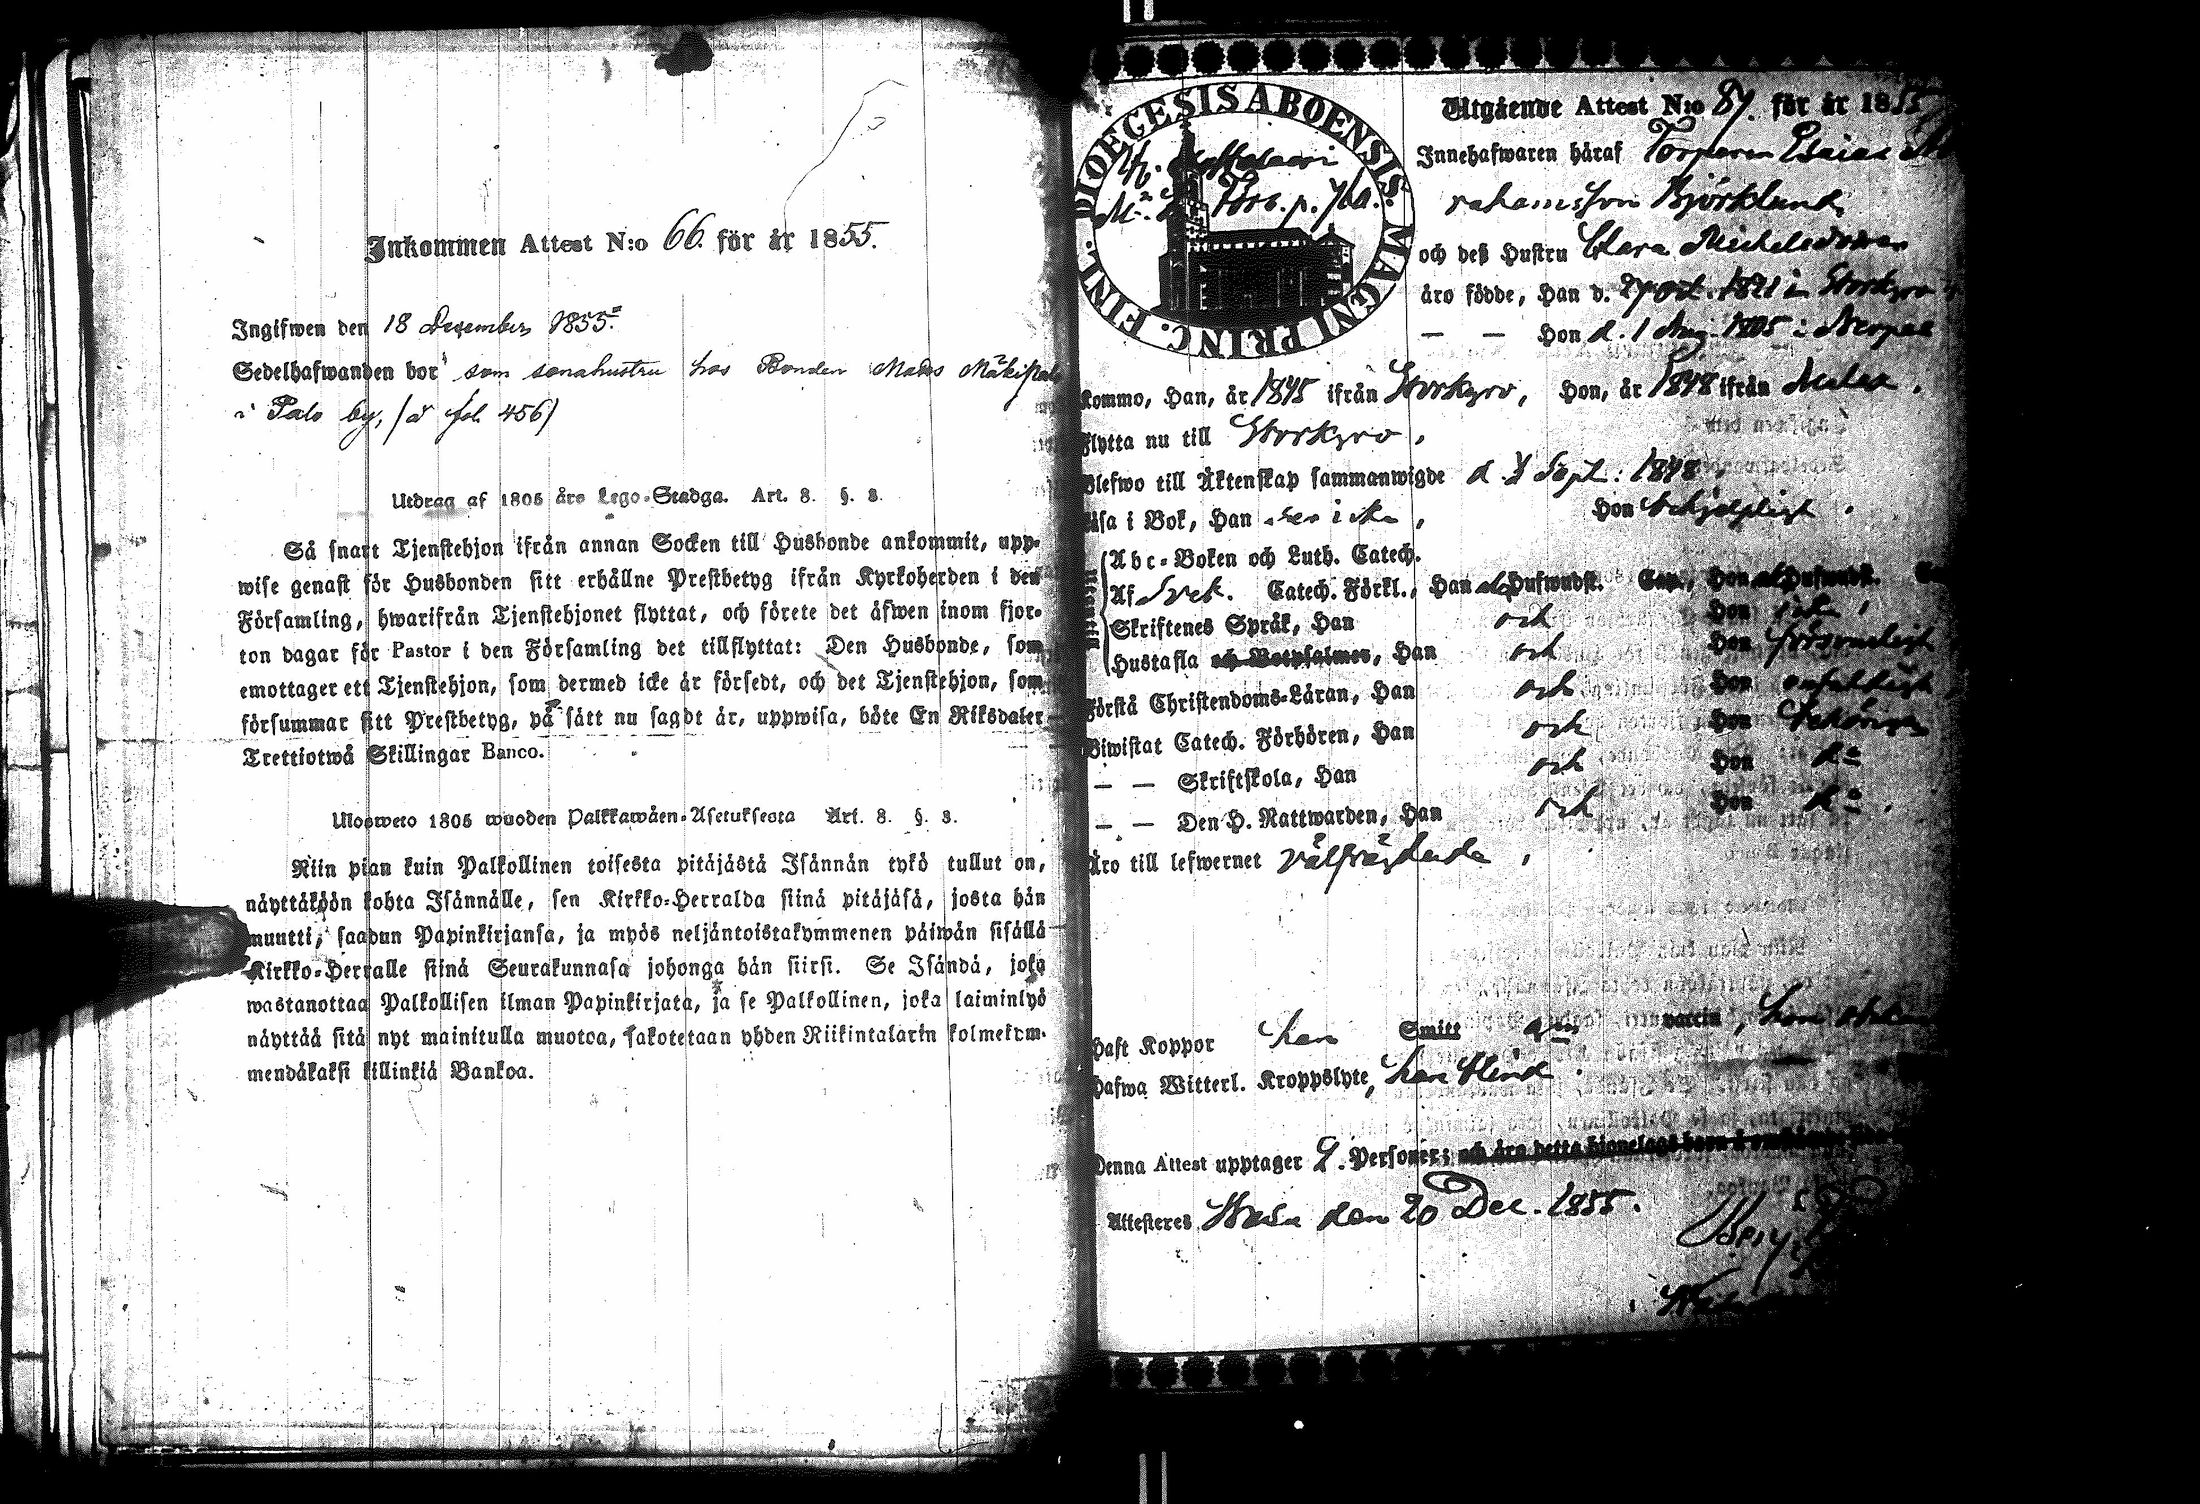 Inkommen Attest N:o 66. för år 1855.
Ingifwen den 18 December 1855.
Sedelhafwanden bor som sonahustru hos Bonden Mats
i Palo by, (å fol. 456)
Utdrag af 1805 års Lego-Stadga. Art. 8. §. 3.
Så snart Tjenstehjon ifrån annan Socken till Husbonde ankommit, upp-
wise genast för Husbonden sitt erhållne Prestbetyg ifrån Kyrkoherden i den
Församling, hwarifrån Tjenstehjonet flyttat, och förete det åfwen inom fjor-
ton dagar för Pastor i den Församling det tillflyttat: Den Husbonde, som
emottager ett Tjenstehjon, som dermed icke är försedt, och det Tjenstehjon, som
försummar sitt Prestbetyg, på sätt nu sagdt är, uppwisa, böte En Riksdaler
Trettiotwå Skillingar Banco.
Ulosweto 1805 wuoden Palkkawäen-Asetuksesta Art. 8. §. 3.
Niin pian kuin Palkollinen toisesta pitäjästä Isännän tykö tullut on,
näyttäköön kohta Isännälle, sen Kirkko-Herralda siinä pitäjäsä, josta hän
muutti, saadun Papinkirjansa, ja myös neljäntoistakymmenen päiwän sisällä
Kirkko-Herralle siinä Seurakunnasa johonga hän siirsi. Se Isändä, joka
wastanottaa Palkollisen ilman Papinkirjata, ja se Palkollinen, joka laiminlyö
näyttää sitä nyt mainitulla muotoa, sakotetaan yhden Riikintalarin kolmekym-
mendäkaksi killinkiä Bankoa.
DIOECESIS ABOENSIS. MAGNI PRINC. FINL.
Utgående Attest N:o 87. för år 1855
Innehafwaren häraf Torparen Esaias
Björklund,
och deß Hustru Clara Michelsdotter
äro födde, Han d. 27 Oct. 1821 i Storkyro
— — Hon d. 1 Aug. 1805 i
kommo, Han, år 1845 ifrån Storkyro, Hon, år 1848 ifrån Malax.
flytta nu till Storkyro,
Blefwo till Äktenskap sammanwigde d. Sept. 1848
läsa i Bok, Han Hon behjelpligt.
Abc-Boken och Luth. Catech.
Af Svek. Catech. Förkl., Han Hufwudst. Cap., Hon Hufwudst.
Skriftenes Språk, Han och Hon icke,
Hustafla och Botpsalmer, Han och Hon försvarligt
Förstå Christendoms-Läran, Han och Hon enfaldigt
Biwistat Catech. Förhören, Han och Hon behörigen
— — Skriftskola, Han och Hon d:o
— — Den H. Nattwarden, Han och Hon d:o.
Äro till lefwernet välfrägdade,
Haft Koppor han Smitt vaccin, hon
Hafwa Witterl. Kroppslyte, han blind
Denna Attest upptager 2. Personer; och äro detta hionelags barn
Attesteres Wasa den 20 Dec. 1855.